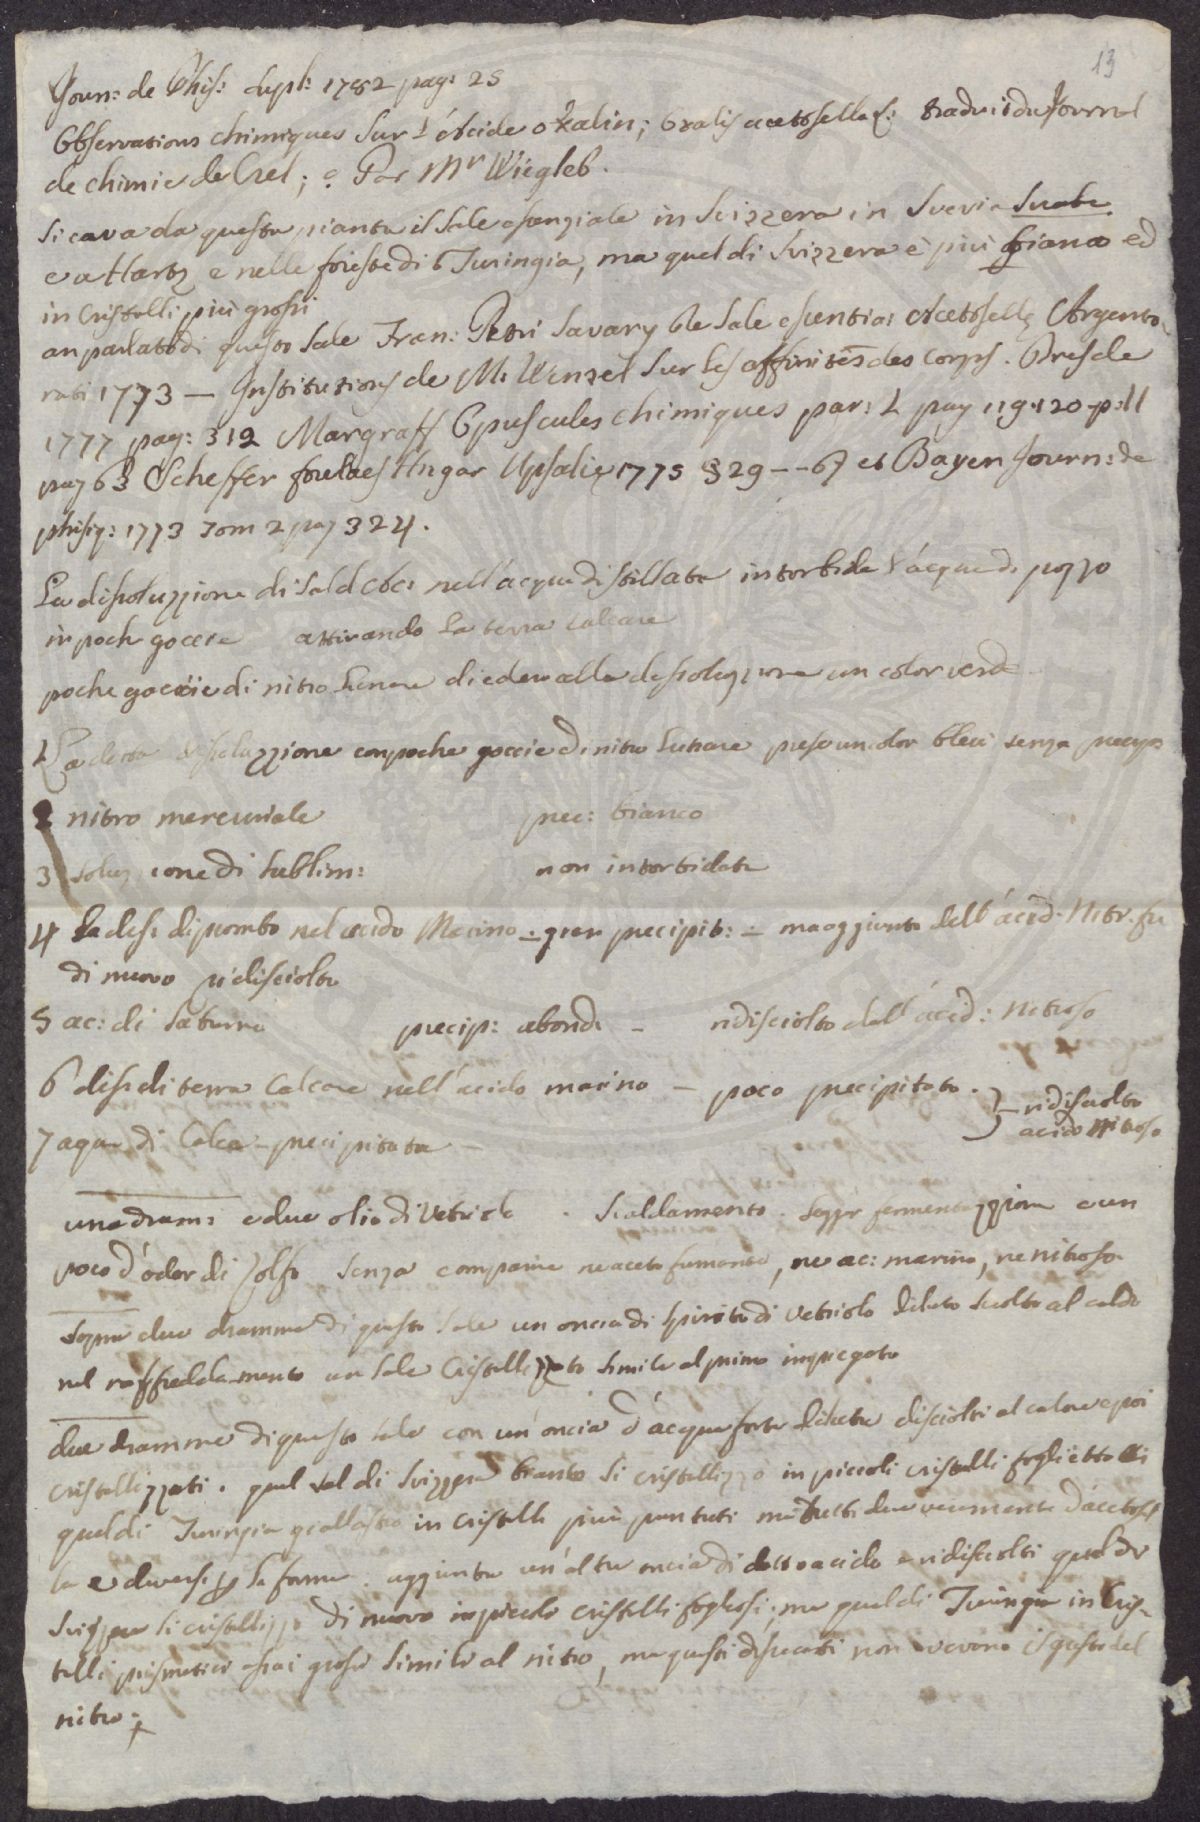 13
Journ: de Phis: supl: 1782 pag: 25
Observations chimiques sur L'ácide oxalin; Oxalis acetosella L: traduit du Journal
de chimie de Crel; Par Mr Wiegleb.
si cava da questa pianta il sale essenziale in Svizzera in Suevia Suabe
e a Hartz e nelle foreste di Turingia, ma quel di Svizzera è più bianco ed
in Cristalli più grossi
an parlato di questo sale Fran: Petri Savary De Sale essentia: Acetosellę Argento-
rati 1773 — Institutions de M. Wenzel sur les affinités des corps. Dresde
1777 pag: 312 Margraff Opuscules chimiques par: L pag 119.120 p: II
pag 63 Scheffer Ungar Upsalię 1775 § 29 -- 67 et Bayen Journ: de
phisiq: 1773 Tom 2 pag 324.
La dissoluzzione di Sal d'Ac: nell'acqua distillata intorbida l'ácqua di pozzo
in poch goccie attirando La terra Calcare
poche goccie di nitro Lunare diedero alla dissoluzzione un color verde
1 La detta dissoluzzione con poche goccie di nitro Lunare prese un color bleù senza precip
2 nitro mercuriale prec: bianco
3 soluzione di sublim: non intorbidata
4 La diss: di piombo nel acido Marino - gran precipit: - ma aggiunto dell'ácid. Nitr. fu
di nuovo ridisciolto
5 ac: di saturno precip: abond: - ridisciolto dall'ácid: Nitroso
6 diss: di terra Calcare nell'ácido marino - poco precipitato. } ridisciolto
7 aqua di Calce - precipitata - acido Nitroso
una dram: e due olio di Vetriolo. Scaldamento. Leggr fermentazzione e un
poco d'ódor di Zolfo senza comparire ne aceto fumante, ne ac: marino, ne nitroso
sopra due dramme di questo sale un oncia di spirito di Vetriolo diluto sciolto al caldo
nel raffreddamento un sale Cristallizzato simile al primo impiegato
due dramme di questo sale con un'óncia d'ácqua forte diluta disciolti al calore e poi
cristallizzati. quel sal di Svizzera bianco si cristallizzò in piccoli cristalli foglietto
quel di Turingia giallastro in cristalli più puntuti ma tutti due veramente d'ácetosel
la e diversi p la forma. aggiunta un'áltra oncia di detto acido e ridisciolti quel di
Svizzera si cristallizzò di nuovo in piccoli cristalli fogliosi; ma quel di Turingia in Cris-
talli prismatici assai grossi simile al nitro, ma questi diseccati non avevano il gusto del
nitro.